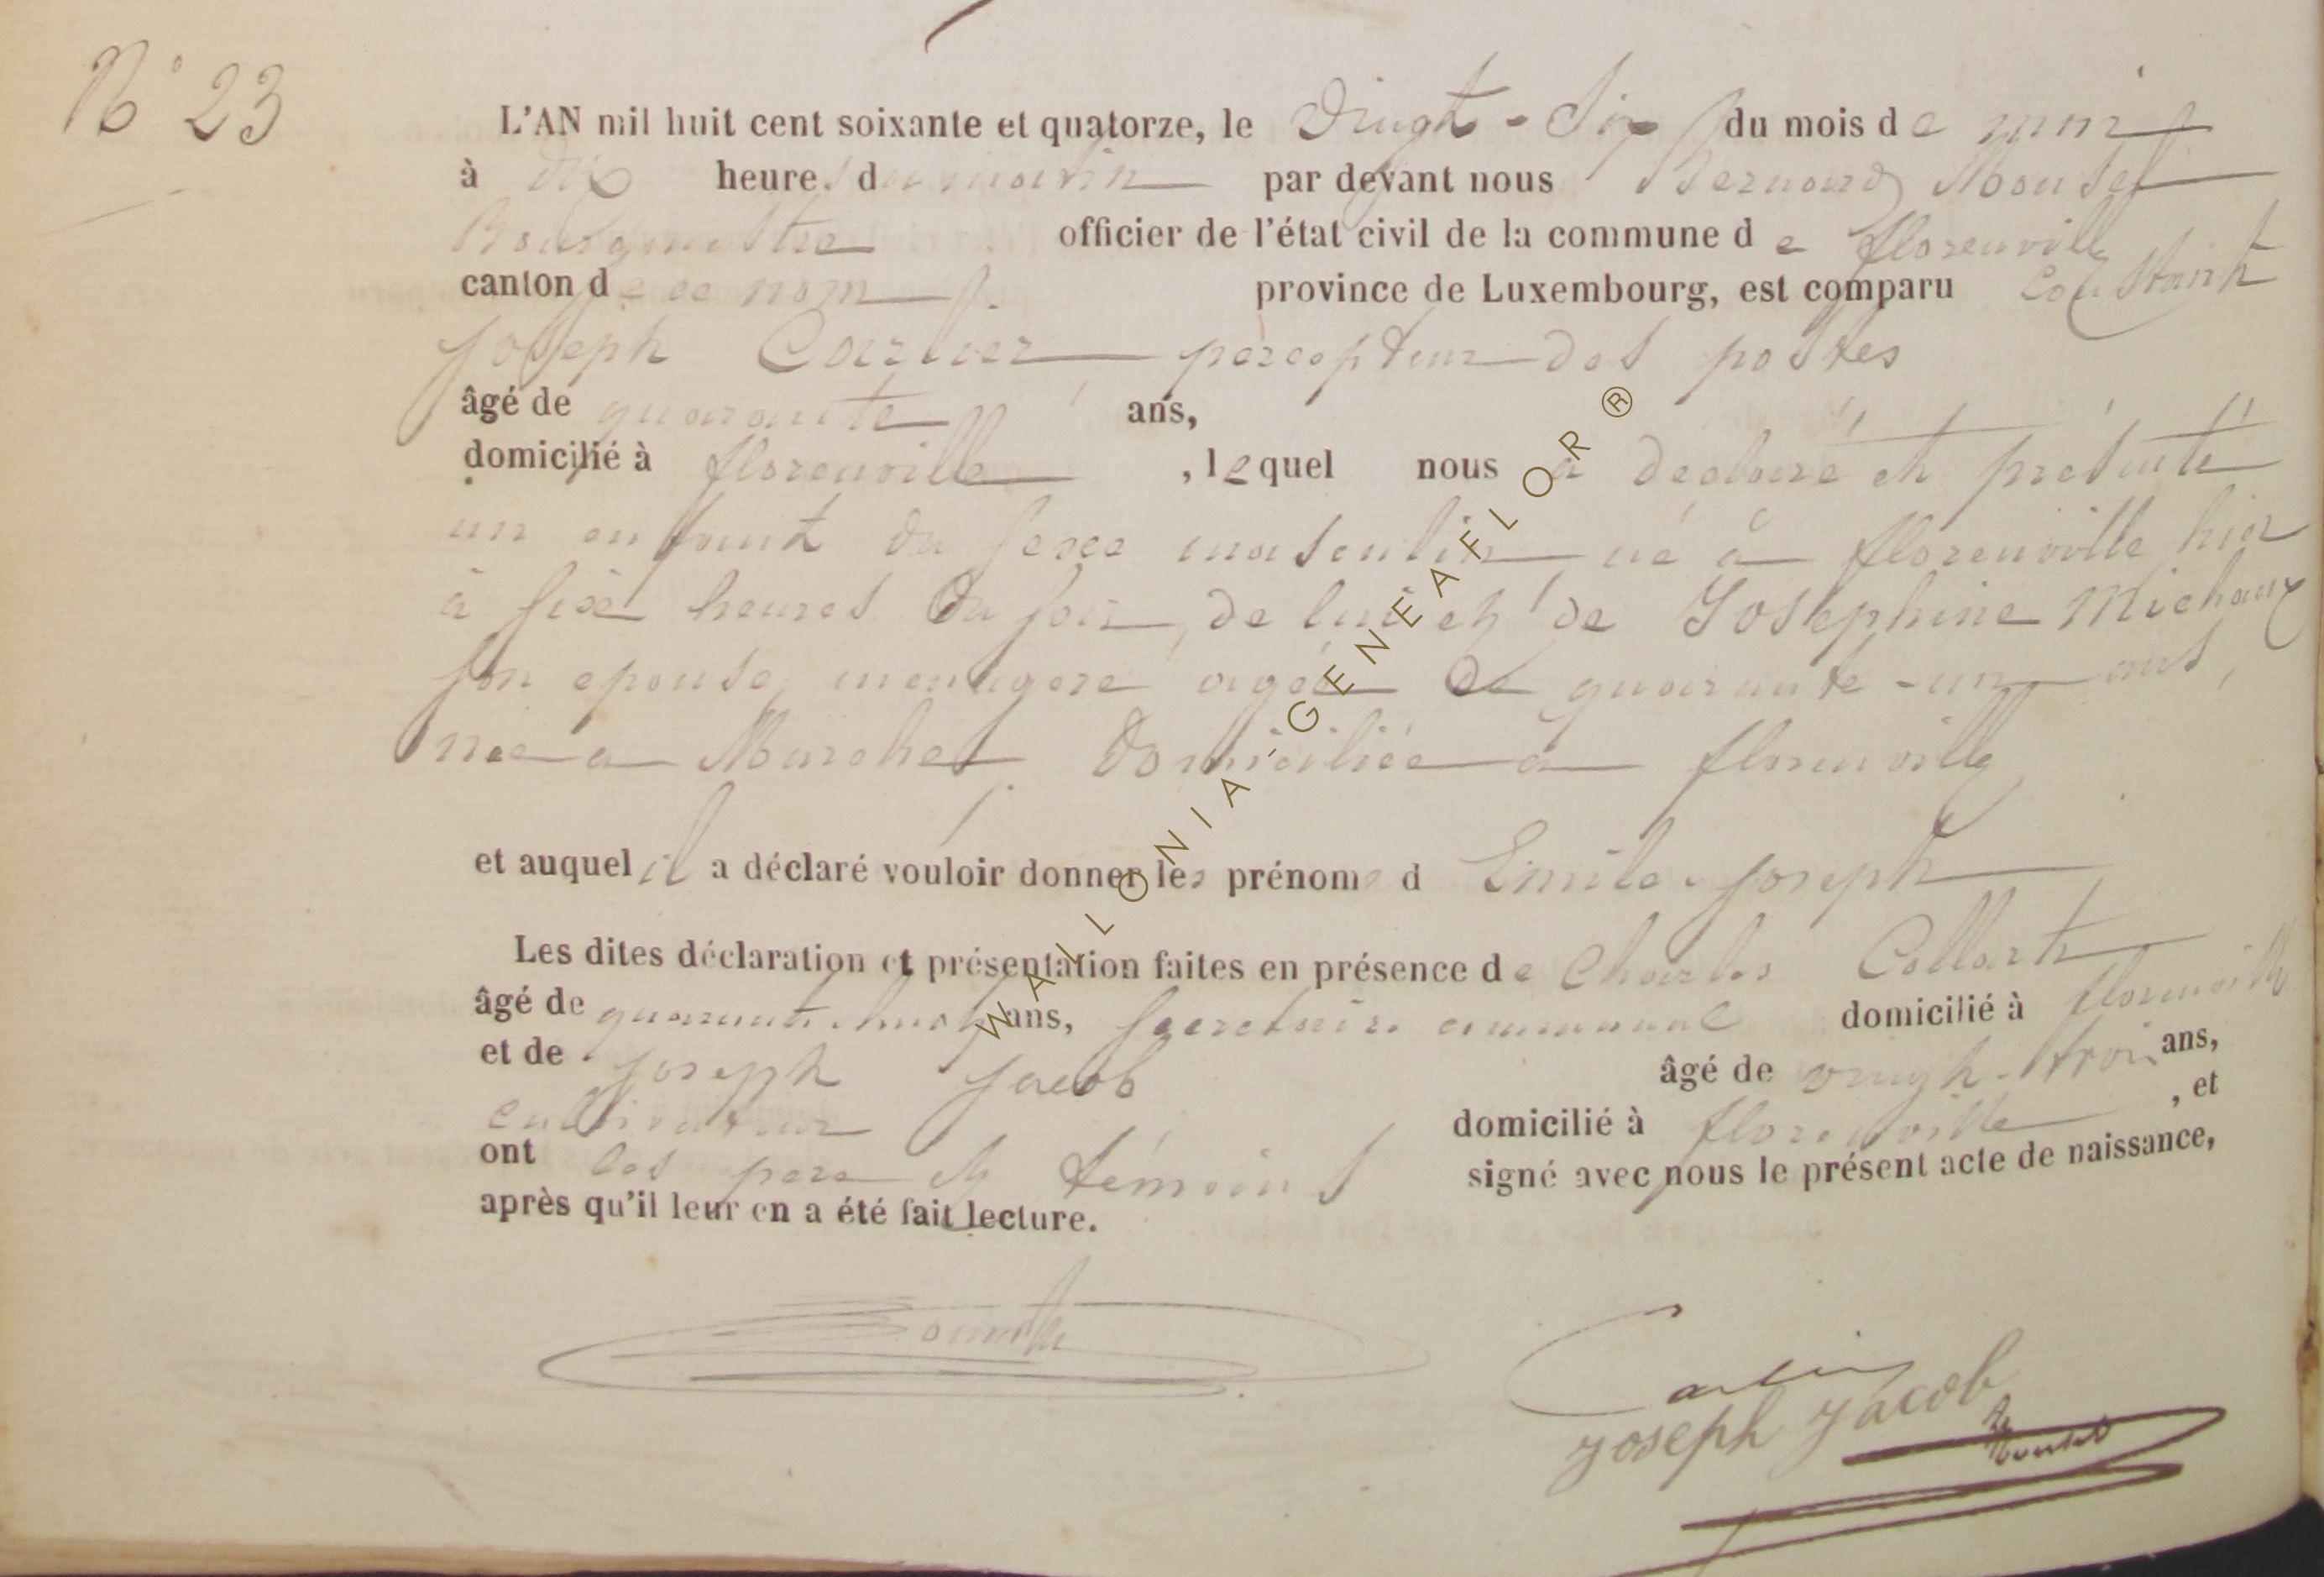 N° 23
L'AN mil huit cent soixante et quatorze, le Vingt-Six du mois de
à dix heures du matin par devant nous Bernard Mousel
Bourgmestre officier de l'état civil de la commune de florenville
canton de ce nom province de Luxembourg, est comparu Constant
Joseph percepteur des postes
âgé de quarante ans,
domicilié à florenville, lequel nous a déclaré et présenté
un enfant du sexe masculin né à florenville hier
à six heures du soir, de lui et de Josephine Michaux
son epouse, menagere agée de quarante-un ans,
née a Marche domiciliée a florenville
et auquel il a déclaré vouloir donner les prénoms d Emile Joseph
Les dites déclaration et présentation faites en présence de Charles Collart
âgé de quarante huit ans, Secretaire communal domicilié à florenville
et de Joseph Jacob âgé de vingt-trois ans,
cultivateur domicilié à florenville, et
ont les pere et témoins signé avec nous le présent acte de naissance,
après qu'il leur en a été fait lecture.
Joseph Jacob
WALLONIA-GENEAFLOR®